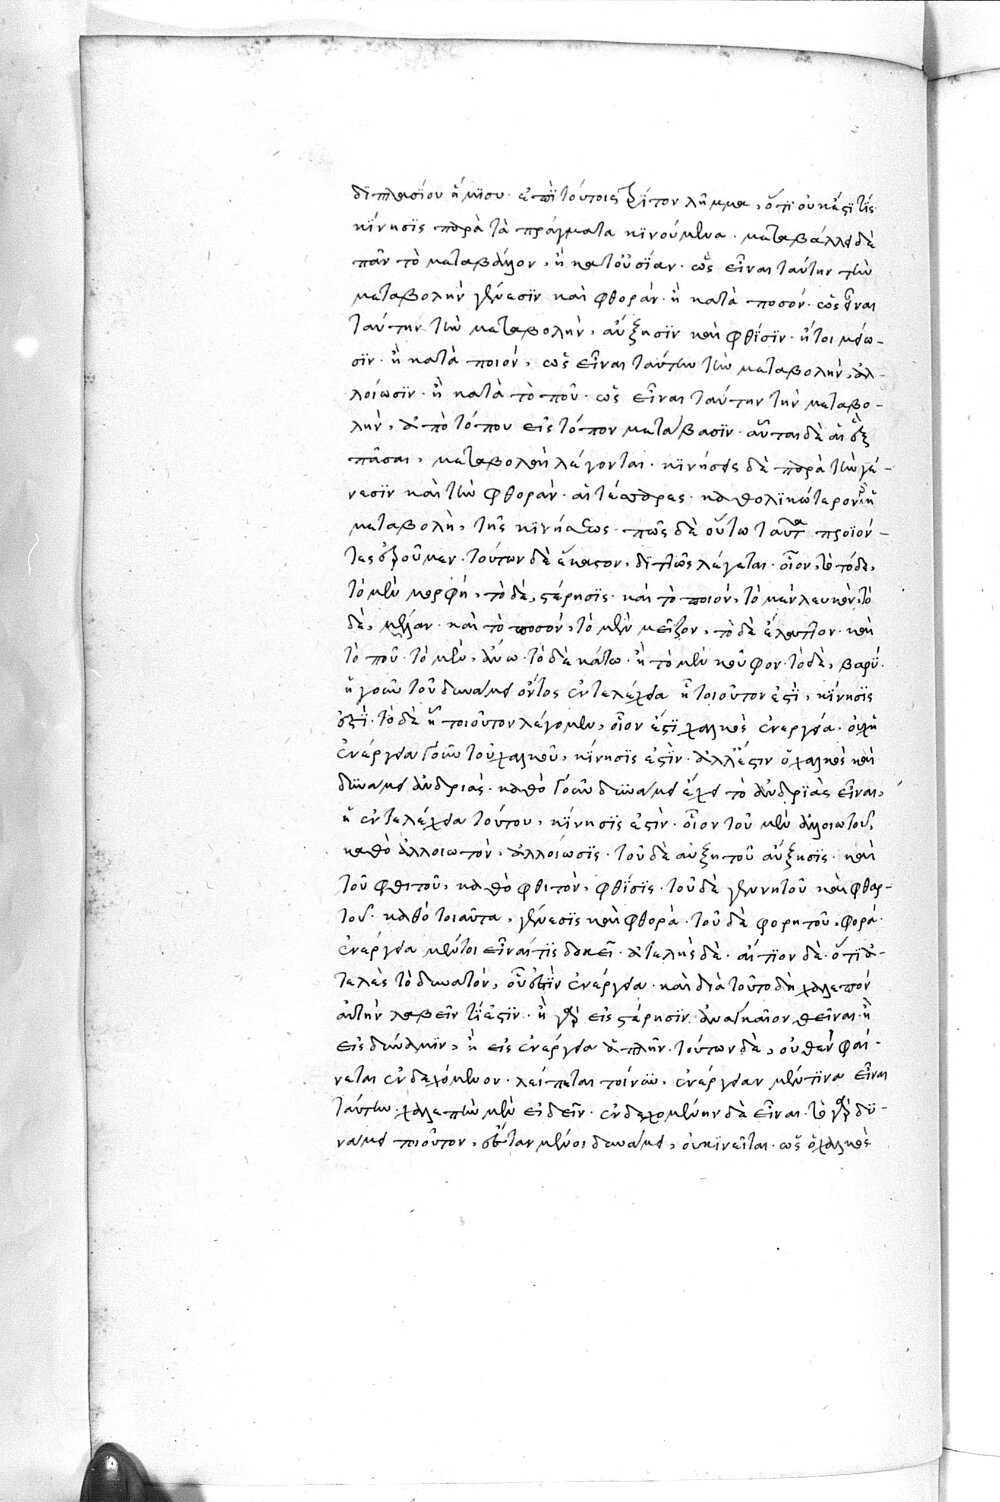 διπλασίου ἥμισυ· ἐπὶ τούτοις τρίτον λῆμμα, ὅτι οὐκ ἔστι τίς
κίνησις παρὰ τὰ πράγματα κινούμενα· μεταβάλλει δὲ
πᾶν τὸ μεταβάλλον, ἢ κατ' οὐσίαν· ὡς εἶναι ταύτην τὴν
μεταβολὴν γένεσιν καὶ φθοράν· ἢ κατὰ ποσόν· ὡς εἶναι
ταύτην τὴν μεταβολὴν, αὔξησιν καὶ φθίσιν· ἤτοι μείω-
σιν· ἢ κατὰ ποιόν, ὡς εἶναι ταύτην τὴν μεταβολὴν, ἀλ-
λοίωσιν· ἢ κατὰ τὸ ποῦ· ὡς εἶναι ταύτην τὴν μεταβο-
λὴν, ἀπὸ τόπου εἰς τόπον μετάβασιν· αὗται δὲ αἱ ἓξ
πᾶσαι, μεταβολαὶ λέγονται· κινήσεις δὲ παρὰ τὴν γέ-
νεσιν καὶ τὴν φθοράν· αἱ τέσσαρες· καθολικώτερον ἡ
μεταβολὴ, τῆς κινήσεως· πῶς δὲ οὕτω ταῦτα προϊόν-
τες ἐροῦμεν· τούτων δὲ ἕκαστον, διττῶς λέγεται· οἷον, τὸ τόδε,
τὸ μὲν μορφή, τὸ δὲ, στέρησις· καὶ τὸ ποιόν, τὸ μὲν λευκὸν, τὸ
δὲ, μέλαν· καὶ τὸ ποσόν, τὸ μὲν μεῖζον, τὸ δὲ ἔλαττον· καὶ
τὸ ποῦ· τὸ μὲν, ἄνω· τὸ δὲ κάτω· ἢ τὸ μὲν κοῦφον· τὸ δὲ, βαρύ·
ἡ γοῦν τοῦ δυνάμει ὄντος ἐντελέχεια ᾗ τοιοῦτον ἐστὶ, κίνησις
ἐστί· τὸ δὲ ᾗ τοιοῦτον λέγομεν, οἷον ἐστὶ χαλκὸς ἐνεργείᾳ· οὐχ ἡ
ἐνέργεια γοῦν τοῦ χαλκοῦ, κίνησις ἐστὶν· ἀλλ' ἔστιν ὁ χαλκὸς καὶ
δυνάμει ἀνδριάς· καθὸ γοῦν δυνάμει ἔχει τὸ ἀνδριὰς εἶναι,
ἡ ἐντελέχεια τούτου, κίνησις ἐστὶν· οἷον τοῦ μὲν ἀλλοιωτοῦ,
καθὸ ἀλλοιωτὸν, ἀλλοίωσις· τοῦ δὲ αὐξητοῦ αὔξησις· καὶ
τοῦ φθιτοῦ, καθὸ φθιτὸν, φθίσις· τοῦ δὲ γεννητοῦ καὶ φθαρ-
τοῦ· καθὸ τοιαῦτα, γένεσις καὶ φθορὰ· τοῦ δὲ φορητοῦ, φορά·
ἐνέργεια μέντοι εἶναι τις δοκεῖ· ἀτελὴς δὲ· αἴτιον δὲ· ὅτι ἀ-
τελὲς τὸ δυνατόν, οὗ ἐστὶν ἐνέργεια· καὶ διὰ τοῦτο δὴ χαλεπὸν
αὐτὴν λαβεῖν τί ἐστιν· ἢ γὰρ εἰς στέρησιν ἀναγκαῖον θεῖναι· ἢ
εἰς δύναμιν, ἢ εἰς ἐνέργεια ἁπλῆν· τούτων δὲ, οὐθὲν φαί-
νεται ἐνδεχόμενον· λείπεται τοίνυν, ἐνέργειαν μέν τινα εἶναι
ταύτην· χαλεπὴν μὲν ἰδεῖν· ἐνδεχομένην δὲ εἶναι· τὸ γὰρ δυ-
νάμει τοιοῦτον, ὅταν μένοι δυνάμει, οὐ κινεῖται· ὡς ὁ χαλκὸς